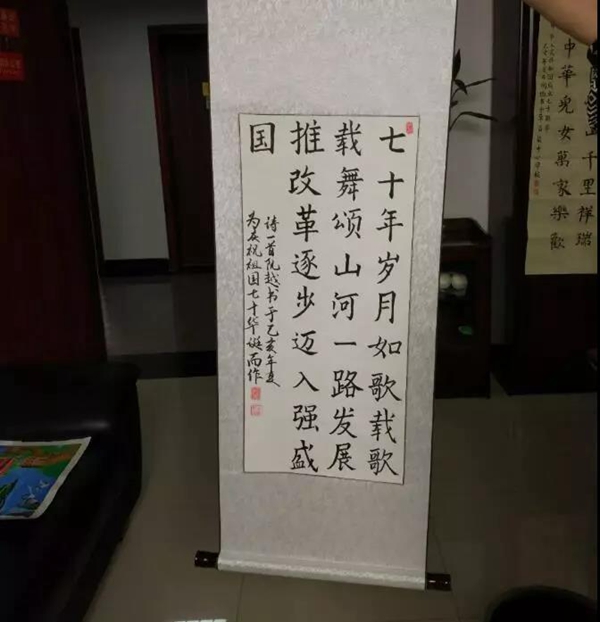 七十年岁月如歌载歌
载舞颂山河一路发展
推改革逐步迈入强盛
国
诗一首阮越书于己亥年夏
为庆祝祖国七十华诞而作
千里祥瑞
中華兒女萬家樂歡